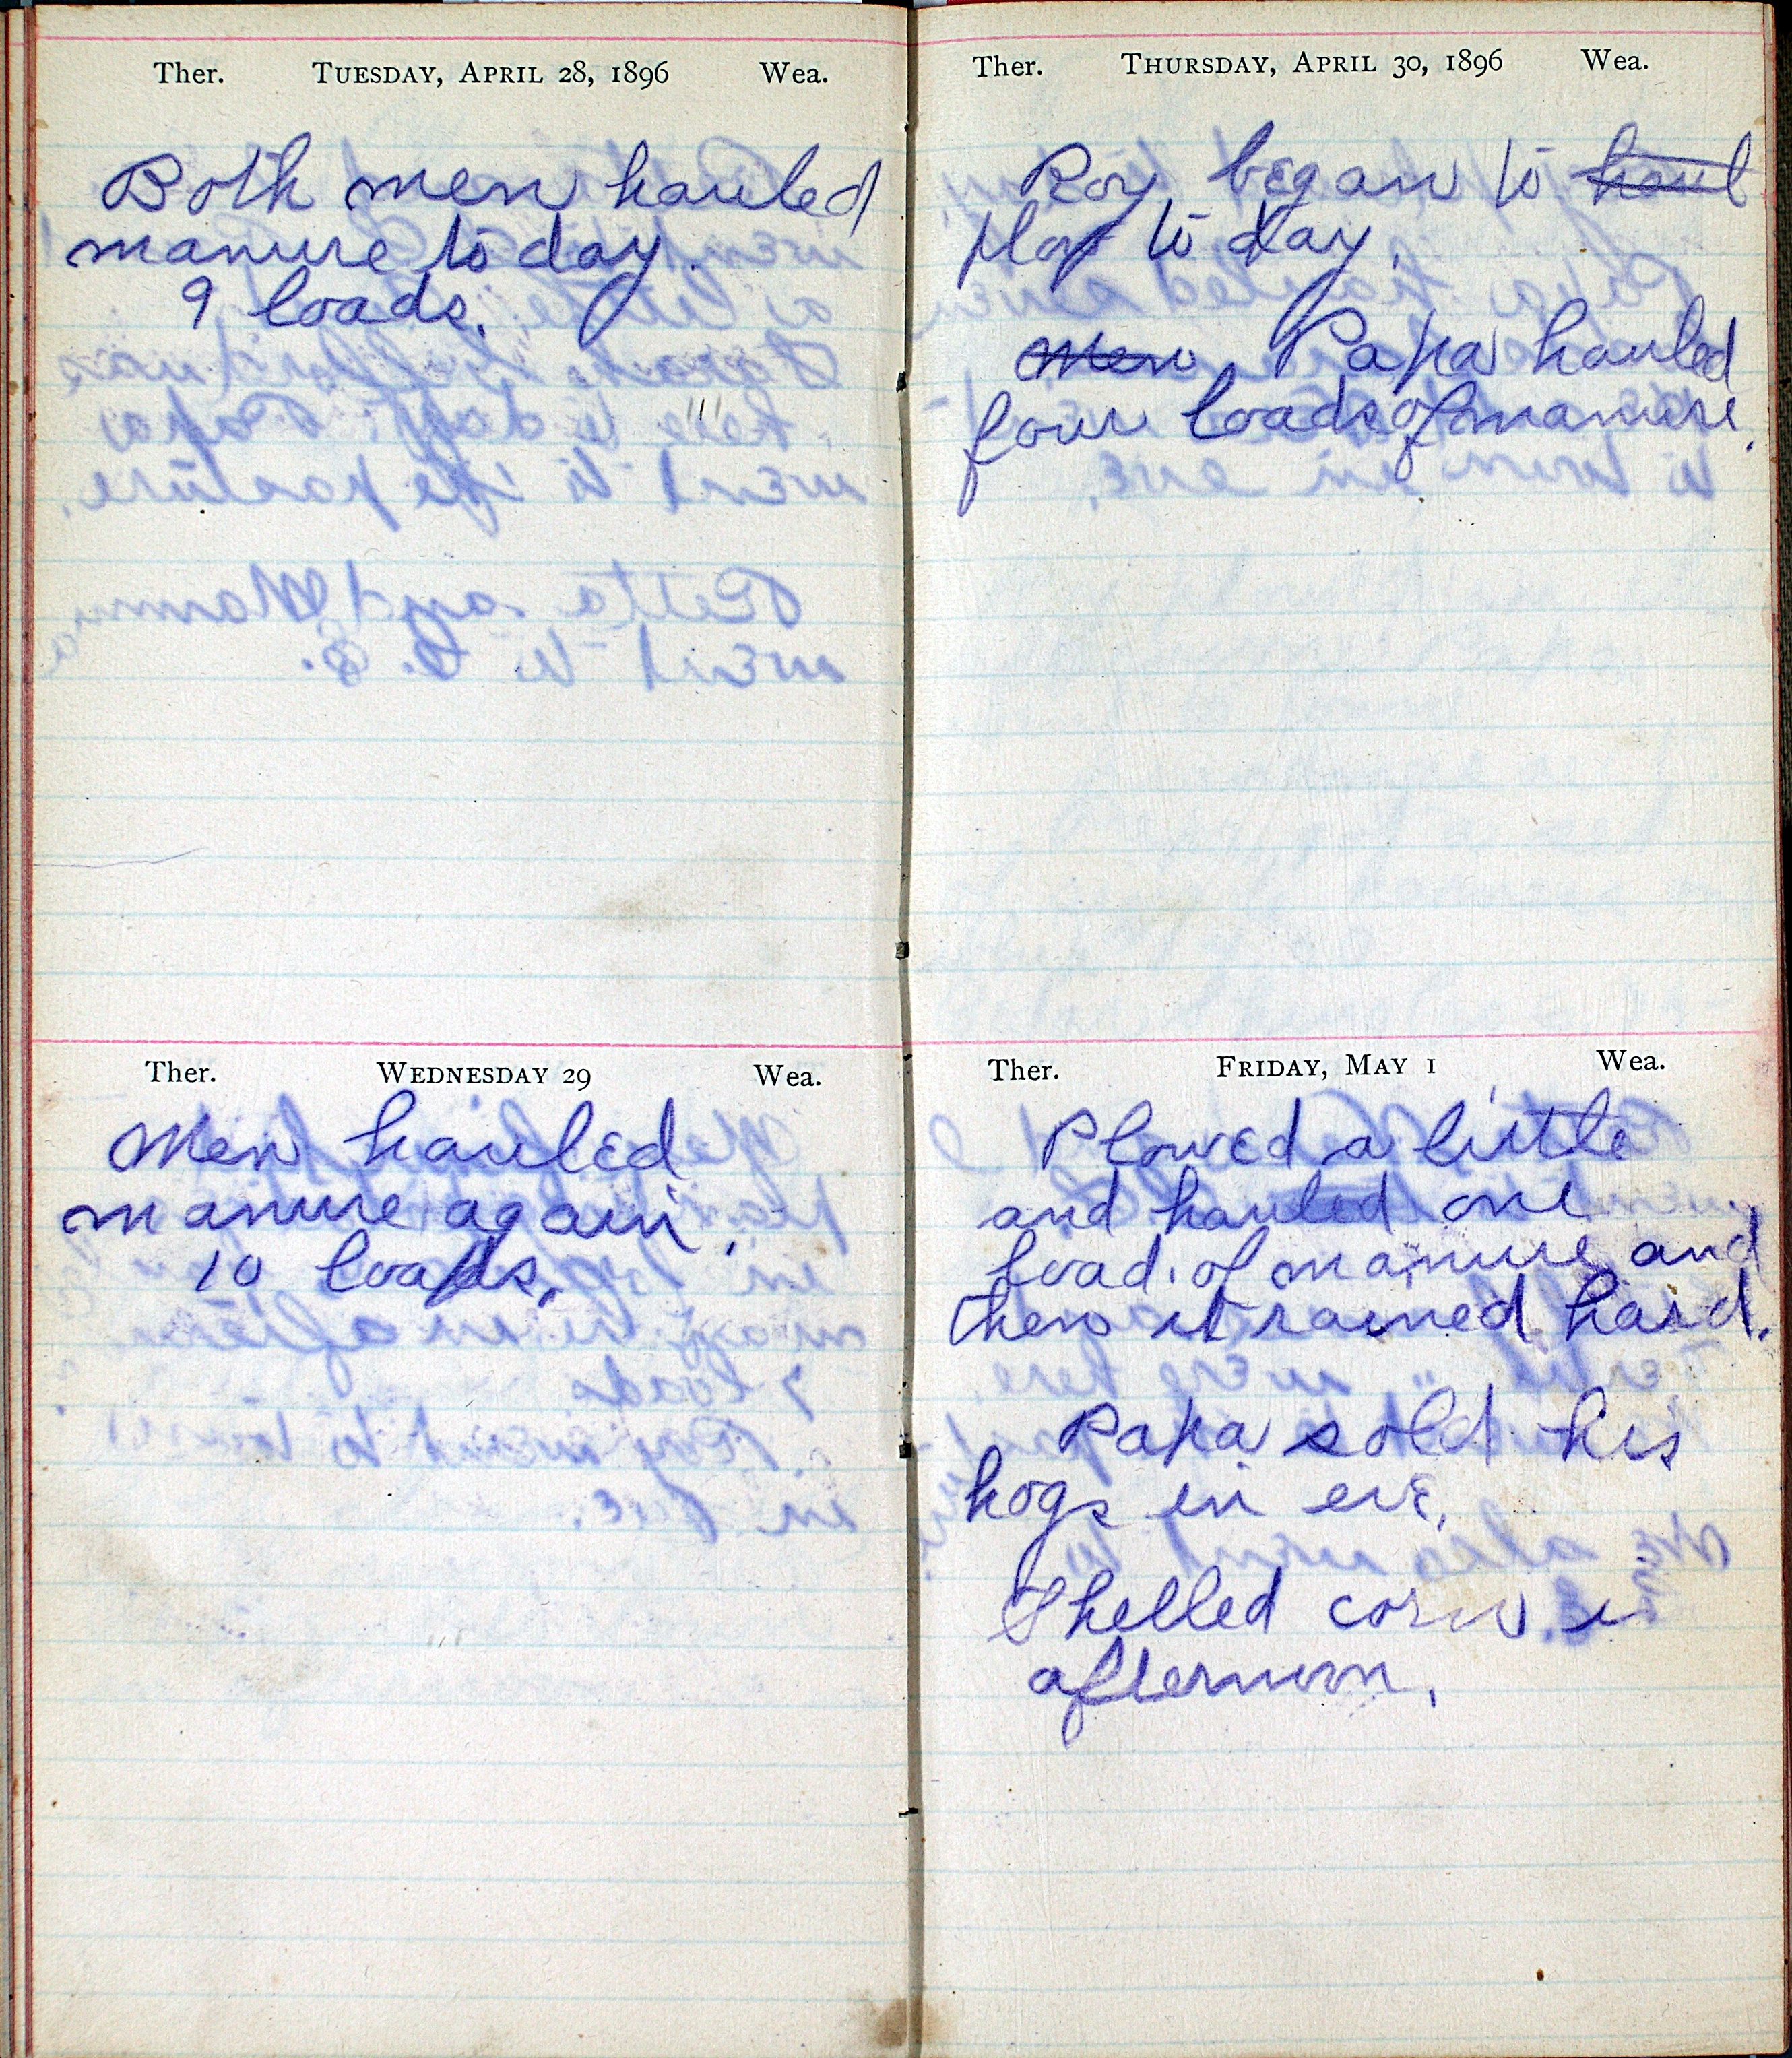 Ther. TUESDAY, APRIL 28, 1896 Wea.
Both men hauled
manure to day.
9 loads.
Ther. WEDNESDAY 29 Wea.
Men hauled
manure again.
10 loads.
Ther. THURSDAY, APRIL 30, 1896 Wea.
Roy began to haul
plow to day.
Men Papa hauled
four loads of manure.
Ther. FRIDAY, MAY 1 Wea.
Plowed a little
and hauled one
load of manure and
then it rained hard.
Papa sold his
hogs in eve.
Shelled corn i
afternoon.